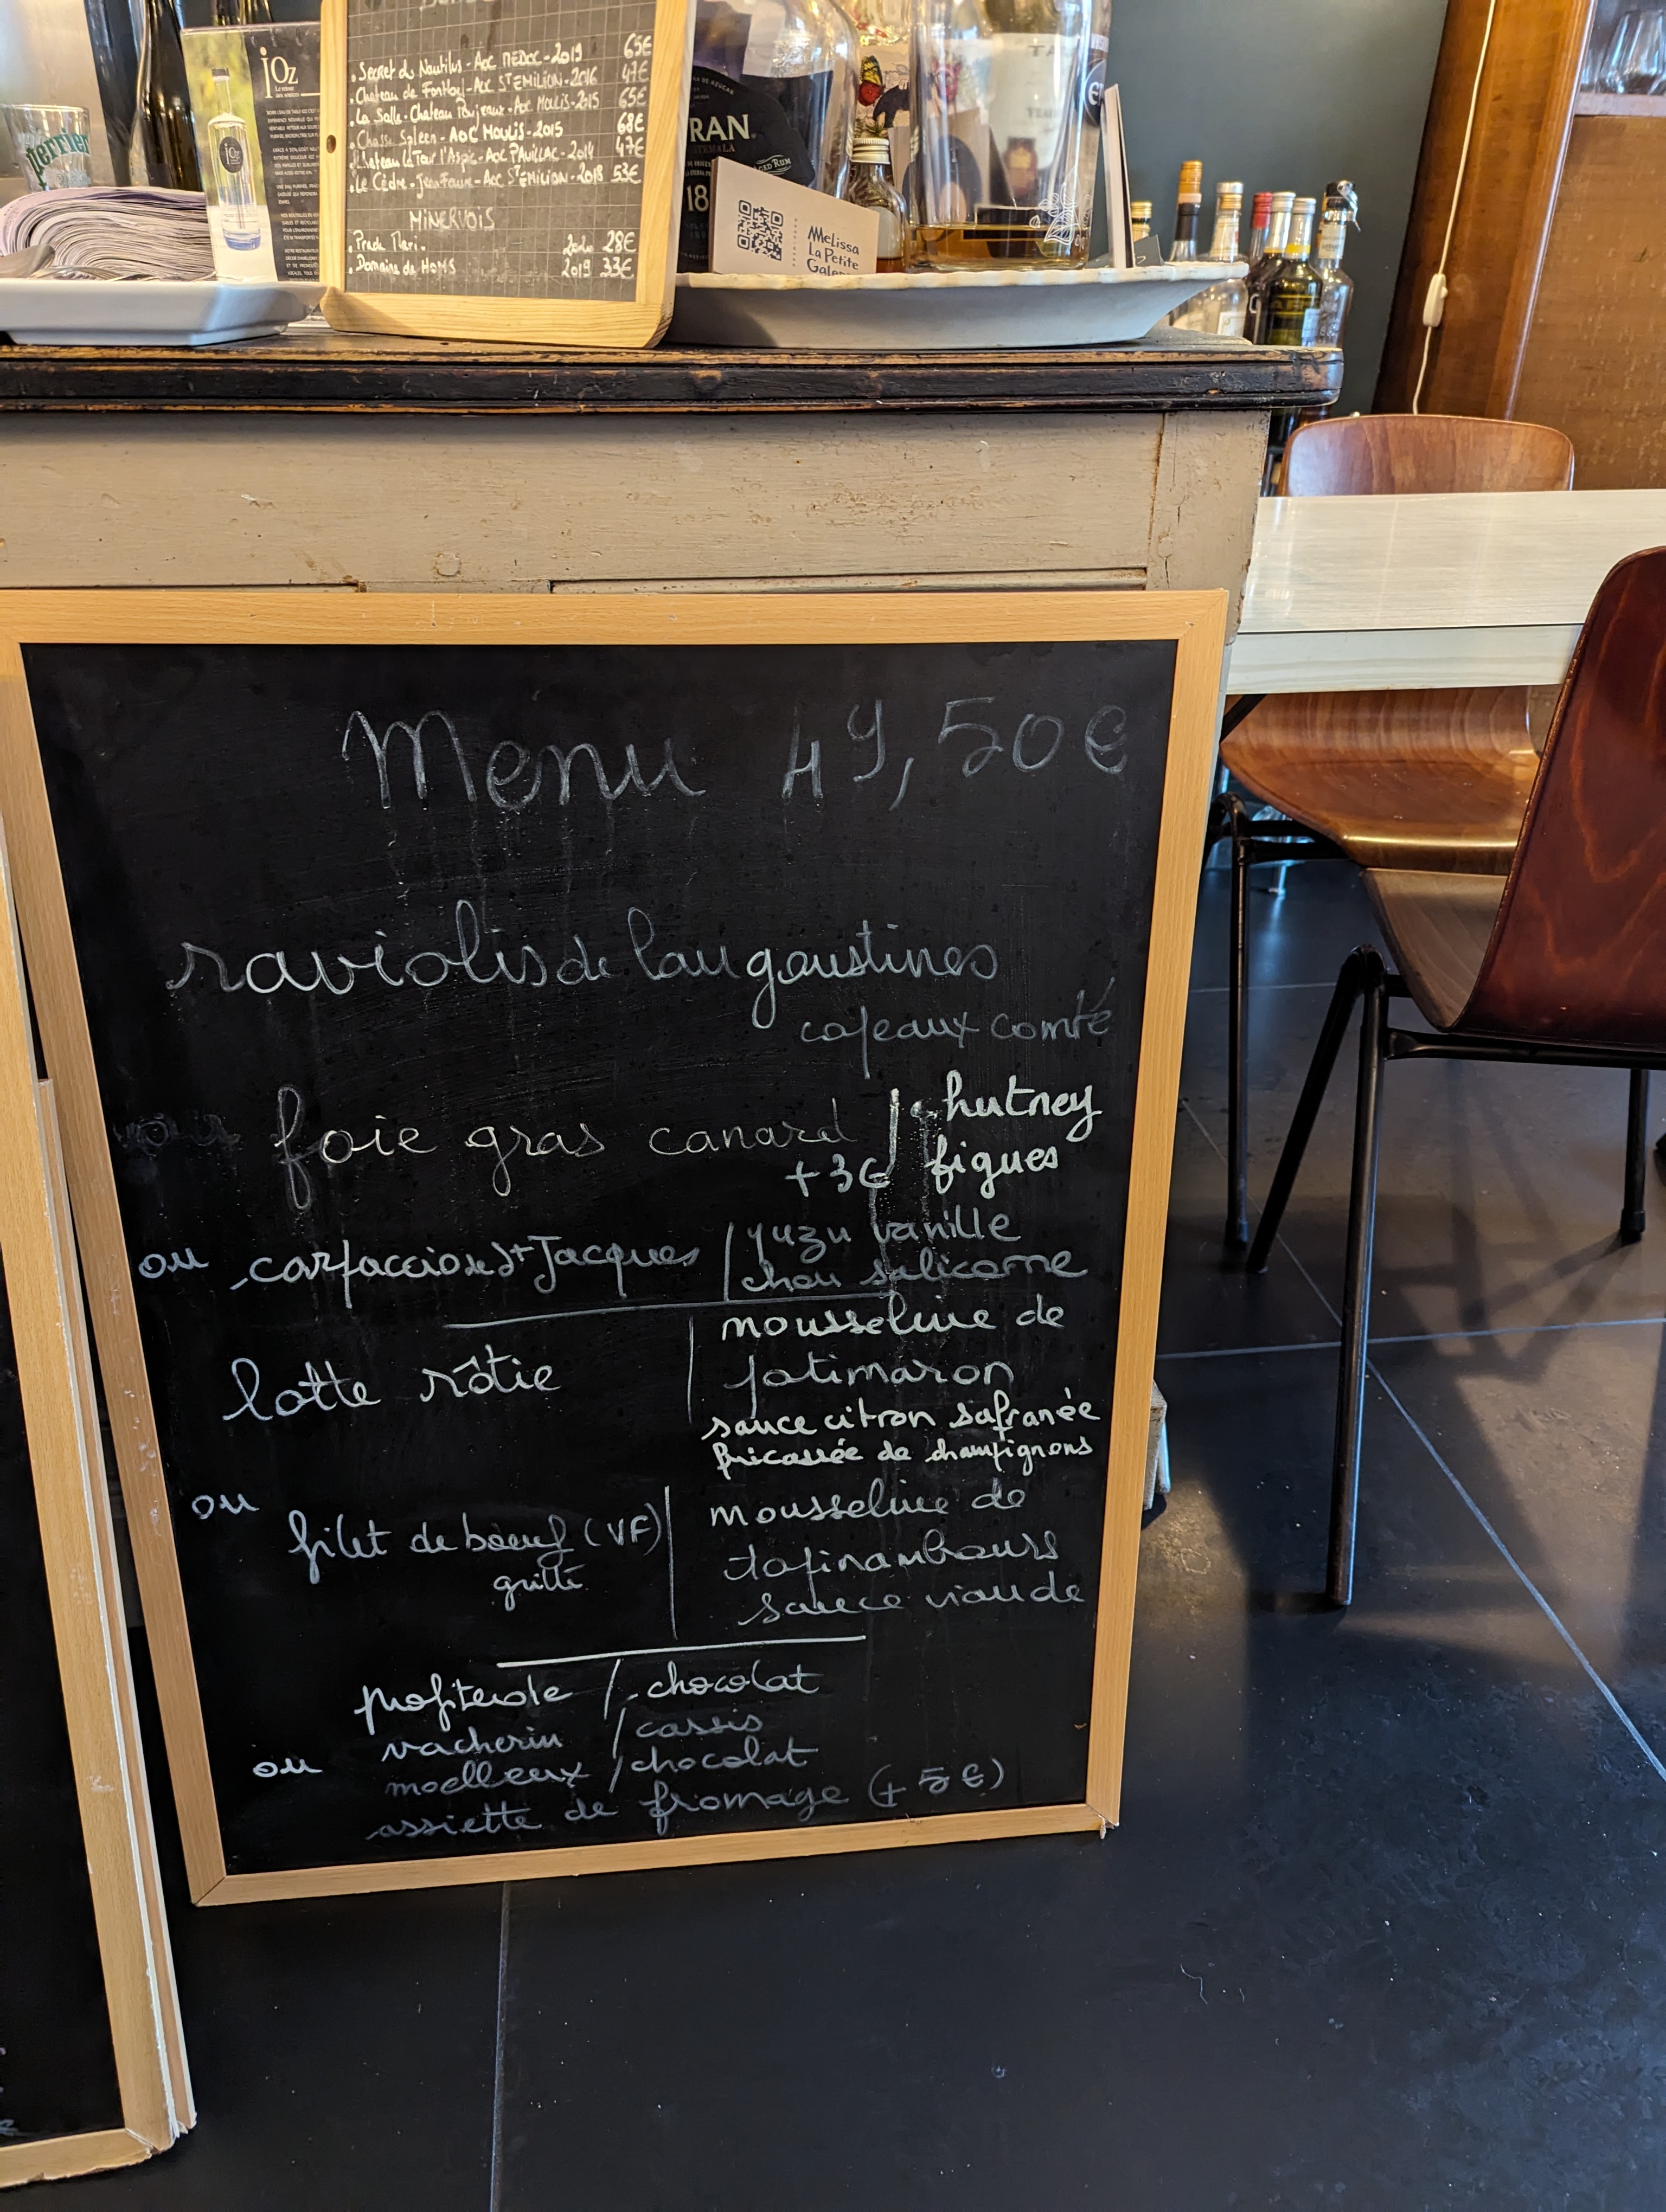 iOz
Perrier
. Secret du Nautilus - AOC MEDOC - 2019 65€
. Chateau de Fonbloy - AOC ST EMILION - 2016 47€
. La Salle - Chateau Poujeaux - AOC MOULIS - 2015 65€
. Chasse Spleen - AOC MOULIS - 2015 68€
. Chateau La Tour l'Aspic - AOC PAUILLAC - 2014 47€
. Le Cèdre - Jean Faure - AOC ST EMILION - 2018 53€
MINERVOIS
. Prade Mari. 28€
. Domaine de HOMS 2019 33€
RAN
GED RUM
18
Melissa
La Petite
Menu 49,50€
raviolis de langoustines
copeaux comté
ou foie gras canard / chutney
+3€ figues
ou carpaccio de St Jacques / yuzu vanille
chou salicorne
lotte rôtie | mousseline de
potimaron
sauce citron safranée
fricassée de champignons
ou
filet de boeuf (VF) | mousseline de
grillé topinambours
sauce viande
profiterole / chocolat
vacherin / cassis
ou moelleux / chocolat
assiette de fromage (+5€)